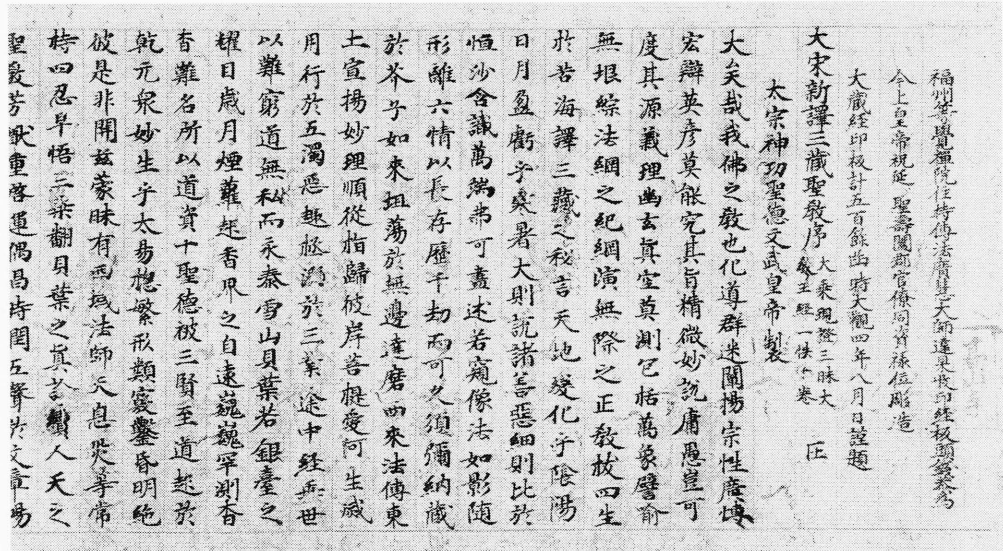 福州等覺禪院住持傳法廣慧大師達杲收印經板頭錢恭為
今上皇帝祝延 聖壽闔郡官僚同資祿位彫造
大藏經印板計五百餘函時大觀四年八月日謹題
大宋新譯三藏聖教序 大乘現證三昧大教王經一帙十卷
太宗神功聖德文武皇帝製
大矣哉我佛之教也化道群迷闡揚宗性廣博
宏辯英彥莫能究其旨精微妙說庸愚豈可
度其源義理幽玄真空莫測包括萬象譬喻
無垠綜法綱之紀綱演無際之正教拔四生
於苦海譯三藏之秘言天地變化乎陰陽
日月盈虧乎寒暑大則說諸善惡細則比於
恒沙含識萬端弗可盡述若窺像法如影隨
形離六情以長存歷千劫而可久須彌納藏
於芥子如來坦蕩於無邊達磨西來法傳東
土宣揚妙理順從指歸彼岸菩提愛河生滅
用行於五濁惡趣拯溺於三業途中經垂世
以難窮道無私而永泰雪山貝葉若銀臺之
耀日歲月煙蘿起香界之自遠巍巍罕測杳
杳難名所以道資十聖德被三賢至道起於
乾元眾妙生乎太易總繁形類竅鑿昏明絕
彼是非開茲蒙昧有西域法師天息災等常
持四忍早悟三乘翻貝葉之真詮續人天之
聖爰芳猷重啓運偶昌時閏五聲於文章暢